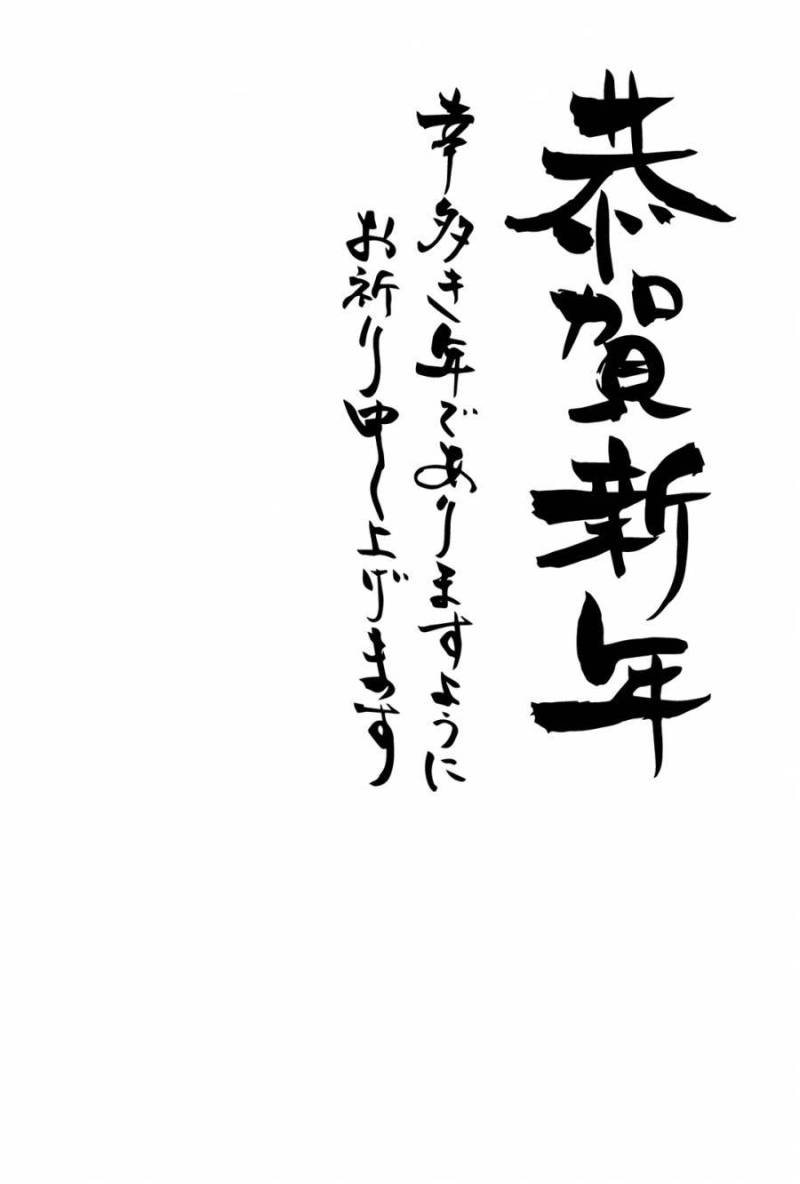 恭賀新年
幸多き年でありますように
お祈り申し上げます